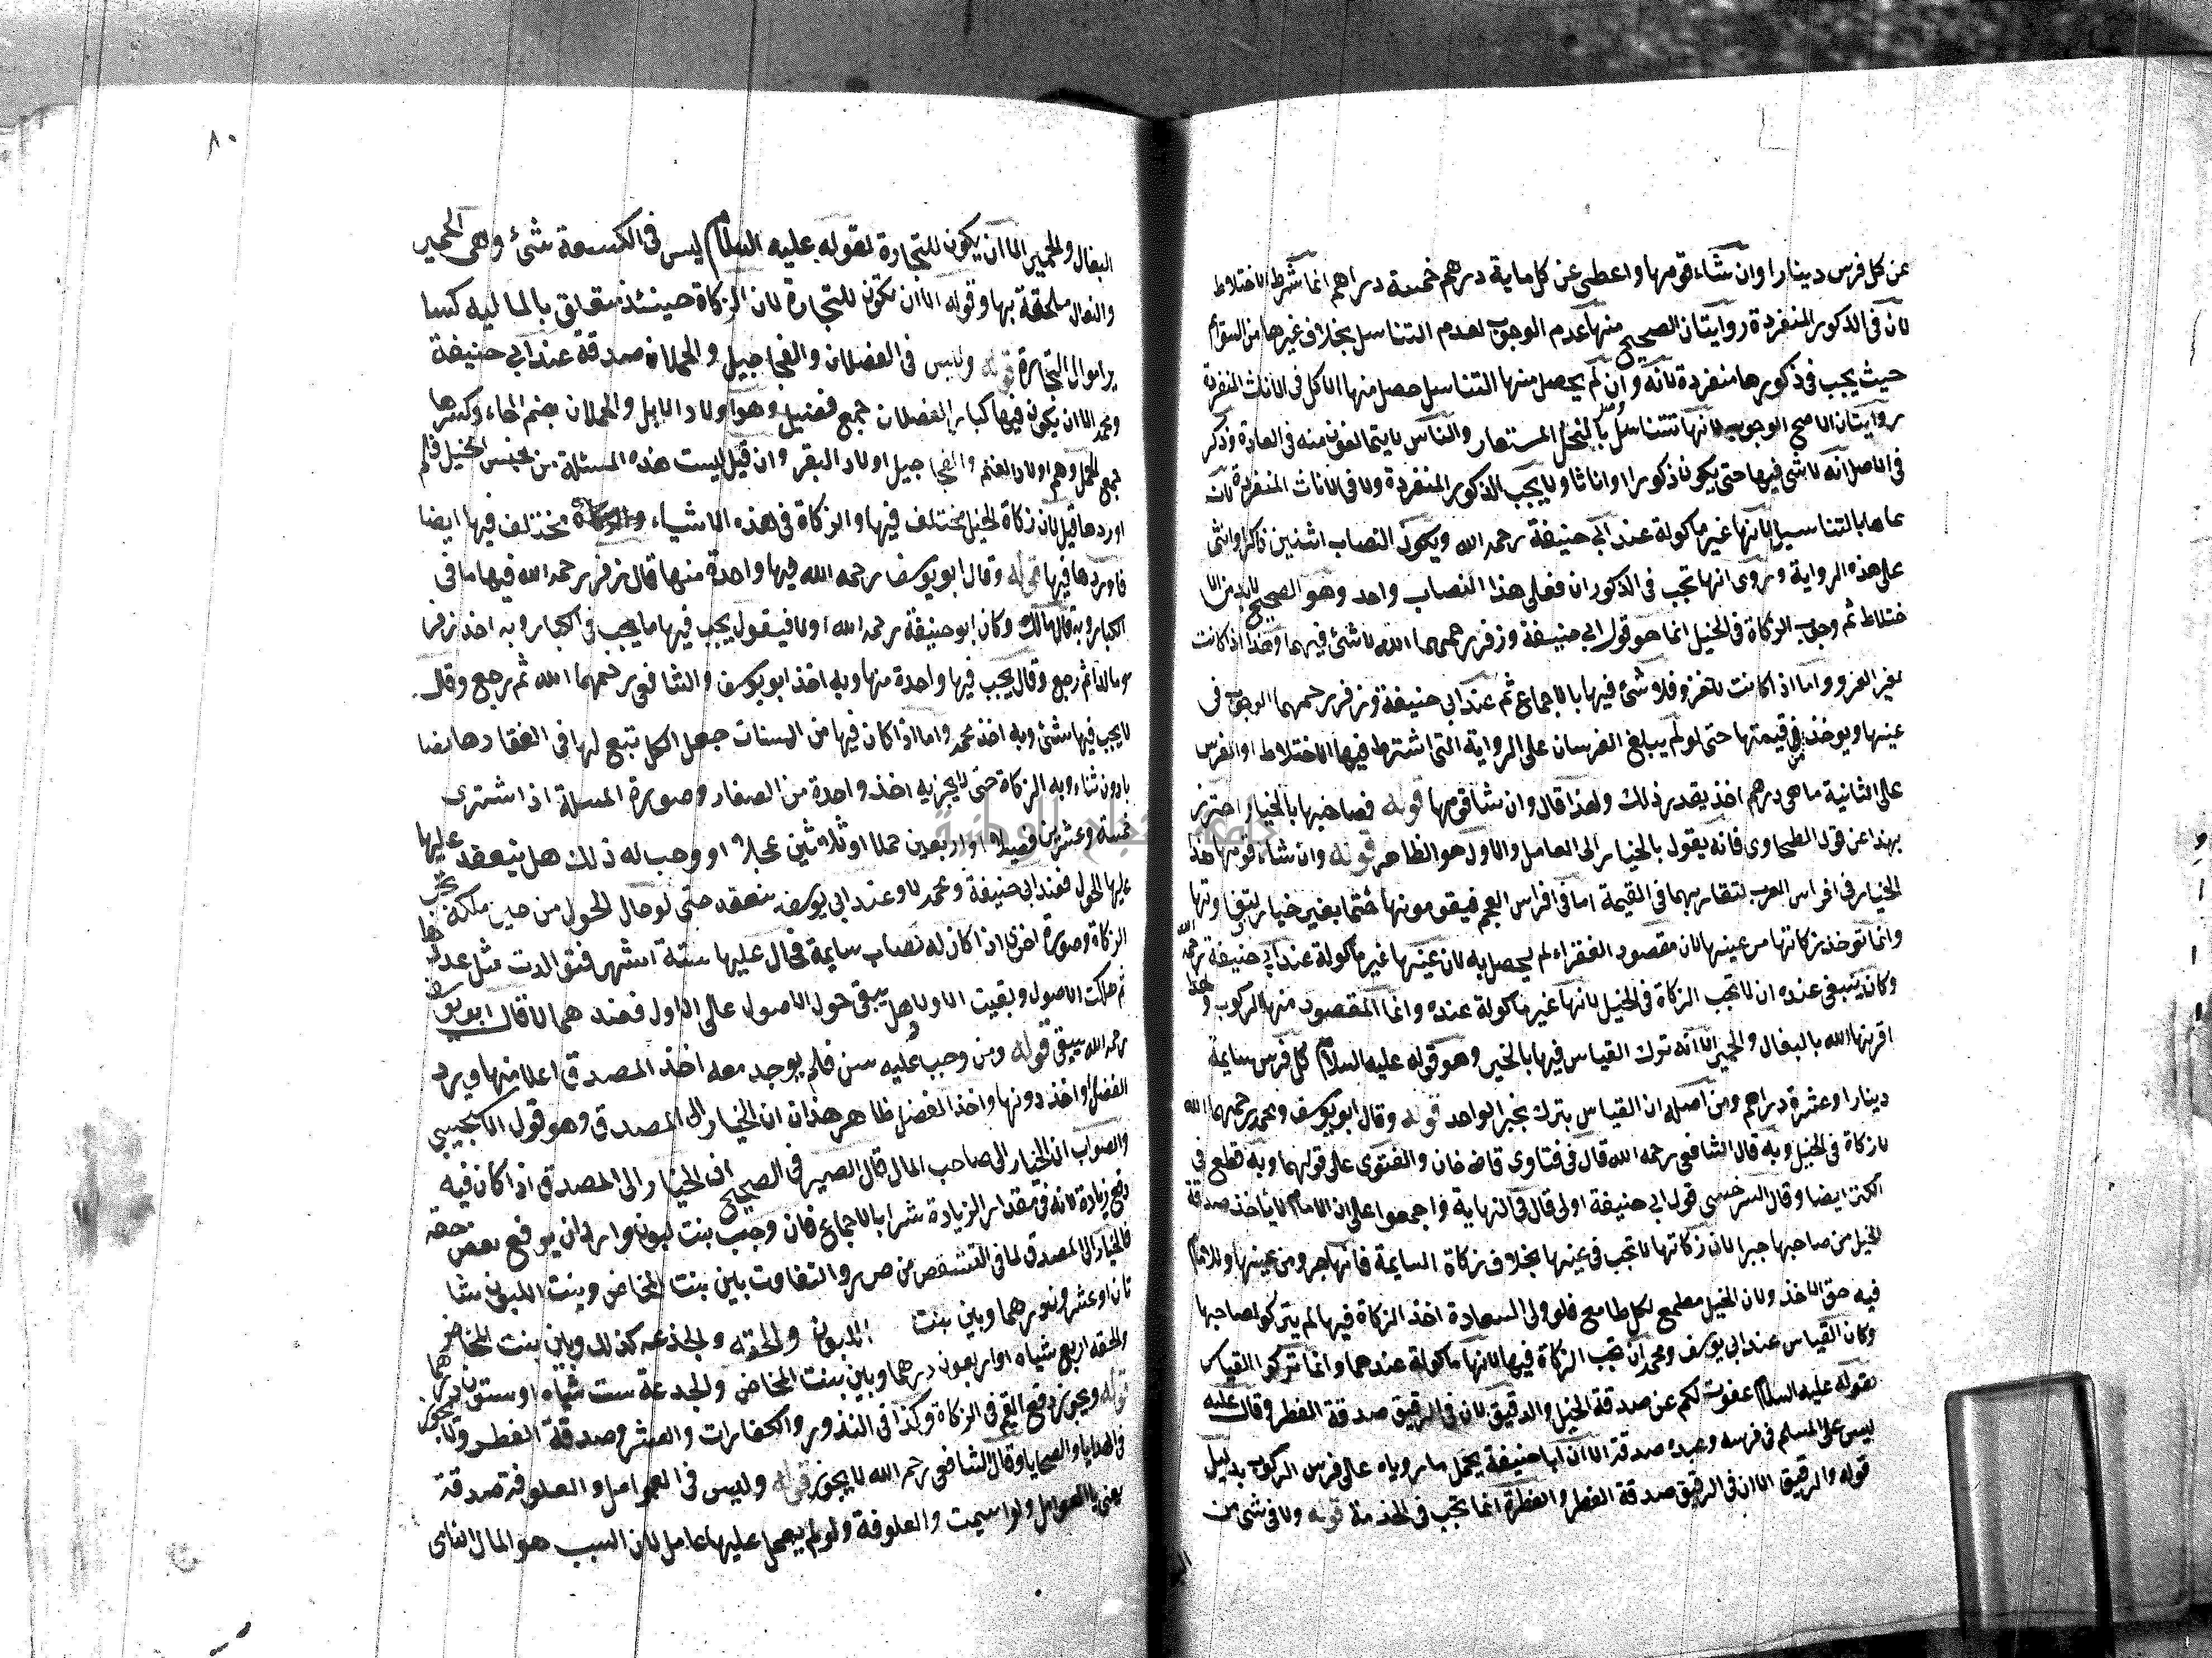 عن كل فرس دينارا وان شاء قومها واعطى عن كل ماية درهم خمسة دراهم انما شرط الاختلاط
لان في الذكور المنفردة روايتان الصحيح منها عدم الوجوب لعدم التناسل بخلاف غيرها من السوائم
حيث يجب في ذكورها منفردة لانه وان لم يحصل منها التناسل حصل منها الاكل في الاناث المنفردة
روايتان الاصح الوجوب لانها تتناسل بالفحل المستعار والناس لا يتمانعون منه في العادة وذكر
في الاصل انه لا شي فيها حتى يكون ذكورا واناثا ولا يجب الذكور المنفردة ولا في الاناث المنفردة لان
نماها بالتناسل لانها غير ماكولة عند ابي حنيفة رحمه الله ويكون النصاب اثنين ذاكرا وانثى
على هذه الرواية وروى انها تجب في الذكور ان فعلى هذا النصاب واحد وهو الصحيح لابد من الا
ختلاط ثم وجوب الزكاة في الخيل انما هو قول ابي حنيفة وزفر رحمهما الله لا شئ فيهما وهذا اذا كانت
لغير الغزو واما اذا كانت للغزو فلا شئ فيها بالاجماع ثم عند ابي حنيفة وزفر رحمهما الوجوب في
عينها ويوخذ من قيمتها حتى لو لم يبلغ الفرسان على الرواية التي اشترط فيها الاختلاط او الفرس
على الثانية ماهي درهم اخذ بقدر ذلك ولهذا قال وان شا قومها قوله فصاحبها بالخيار احترز
بهذا عن قول الطحاوي فانه يقول بالخيار الى العامل والاول هو الظاهر قوله وان شاء قومها هذا
الخيار في افراس العرب لتقاربهما في القيمة اما في افراس العجم فيقومونها حتما بغير خيار لتفاوتها
وانما توخذ زكاتها من عينها لان مقصود الفقراء لم يحصل به لان عينها غير ماكولة عند ابي حنيفة رحمه الله
وكان ينبغي عنده ان لا تجب الزكاة في الخيل لانها غير ماكولة عنده وانما المقصود منها الركوب ولهذا
اقرنها الله بالبغال والحمير الا انه ترك القياس فيها بالخبر وهو قوله عليه السلام كل فرس سايمة
دينارا وعشرة دراهم ومن اصله ان القياس يترك بخبر الواحد قوله وقال ابو يوسف ومحمد رحمهما الله
لا زكاة في الخيل وبه قال الشافعي رحمه الله قال في فتاوى قاضي خان والفتوى على قولهما وبه قطع في
الكنز ايضا وقال السرخسي قول ابي حنيفة اولى قال في النهاية واجمعوا على ان الامام لا ياخذ صدقة
الخيل من صاحبها جبرا لان زكاتها لا تجب في عينها بخلاف زكاة السايمة فانها جزو من عينها وللامام
فيه حق الاخذ ولان الخيل مطمع لكل طامع فلو ولى السعادة اخذ الزكاة فيها لم يتركو لصاحبها
وكان القياس عند ابي يوسف ومحمد ان تجب الزكاة فيها لانها ماكولة عندهما وانما تركوا القياس
بقوله عليه السلام عفوت لكم عن صدقة الخيل والدقيق لان في الرقيق صدقة الفطر وقال عليه
ليس على المسلم في فرسه وعبده صدقة الا ان ابا حنيفة يحمل ما روياه على فرس الركوب بدليل
قوله والرقيق الا ان في الرقيق صدقة الفطر والفطرة انما تجب في الخدمة قوله ولا في شئ من
٨٠
البغال والحمير الا ان يكون للتجارة لقوله عليه السلام ليس في الكسعة شئ وهي الحمير
والبغال ملحقة بها وقوله الا ان تكون للتجارة لان الزكاة حينئذ تتعلق بالماليه كسا
ير اموال التجارة قوله وليس في الفصلان والعجاجيل والحملان صدقة عند ابي حنيفة
ومحمد الا ان يكون فيها كبار الفصلان جمع فصيل وهو اولاد الابل والحملان بضم الحاء وكسرها
جمع الحمل وهم اولاد الغنم والعجاجيل اولاد البقر وان قيل ليست هذه المسئلة من جنس الخيل فلم
اوردها قيل لان زكاة الخيل مختلف فيها والزكاة في هذه الاشياء مختلف فيها ايضا
فاوردها فيها قوله وقال ابو يوسف رحمه الله فيها واحدة منها قال زفر رحمه الله فيها ما في
الكبار وبه قال مالك وكان ابو حنيفة رحمه الله اولا فيقول يجب فيها ما يجب في الكبار وبه اخذ زفر
ومالك ثم رجع وقال يجب فيها واحدة منها وبه اخذ ابو يوسف والشافعي رحمهما الله ثم رجع وقال
لا يجب فيها شئ وبه اخذ محمد واما اذا كان فيها من المسنات جعل الكل تبع لها في انعقادها نصا
با دون ثناء وبه الزكاة حتى لا يجزيه اخذ واحدة من الصغار وصورة المسلة اذا اشترى
خمسة وعشرين فصيلا او اربعين حملا او ثلاثين عجلا او وهب له ذلك هل ينعقد عليها
عليها الحول فعند ابي حنيفة ومحمد لا وعند ابي يوسف ينعقد حتى لو حال الحول من حين ملكه تجب
الزكاة وصورة اخرى اذا كان له نصاب سايمة فحال عليها ستة اشهر فتوالدت مثل عددها
ثم هلكت الاصول وبقيت الاولاد هل يبقى حول الاصول على الاول فعندهما لا قال ابو يوسف
رحمه الله يبقى قوله ومن وجب عليه سن فلم يوجد معه اخذ المصدق اعلا منها ويرد
الفضل واخذ دونها واخذ الفضل ظاهر هذان ان الخيار الى المصدق وهو قول
والصواب ان الخيار الى صاحب المال قال الصيرفي الصحيح ان الخيار الى المصدق اذا كان فيه
دفع زيادة لانه في مقدار الزيادة شرا بالاجماع فان وجب بنت لبون واراد ان يوقع بعض حقه
فالخيار الى المصدق لما في التشقص من ضرر والتفاوت بين بنت المخاض وبنت اللبون شا
تان او عشرون درهما وبين بنت اللبون والحقه والجذعه كذلك وبين بنت المخاض
والحقه اربع شياه او اربعون درهما وبين بنت المخاض والجدعة ست شياه او ستون درهما
قوله ويجوز دفع القيم في الزكاة وكذا في النذور والكفارات والعشر وصدقة الفطر ولا يجوز
في الهدايا والضحايا وقال الشافعي رحمه الله لا يجوز قوله وليس في العوامل والعلوفة صدقة
يعني بالعوامل ولو اسيمت والعلوفة ولو لم يعمل عليها عامل لان السبب هو المال النامي